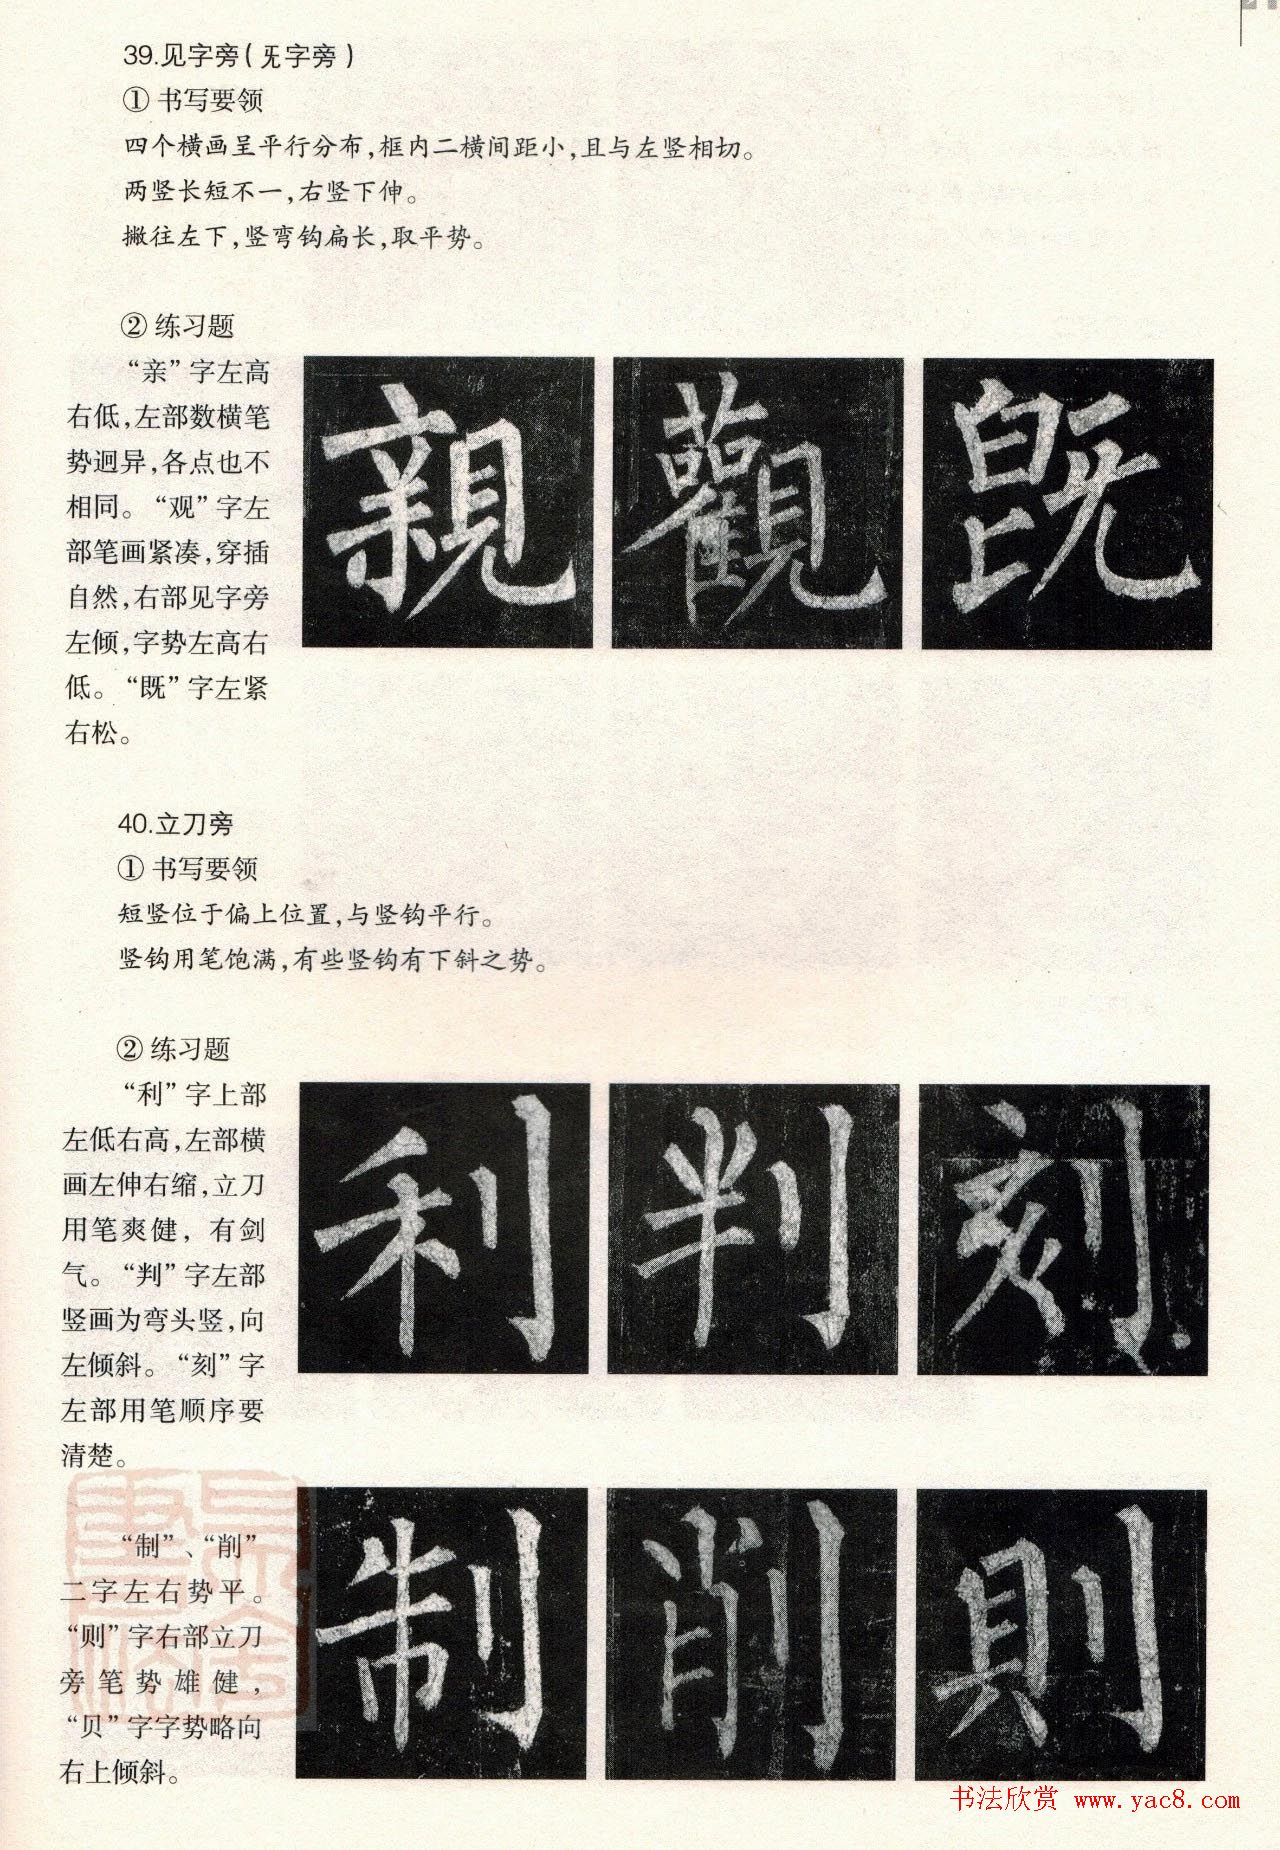 39.见字旁(旡字旁)
① 书写要领
四个横画呈平行分布,框内二横间距小,且与左竖相切。
两竖长短不一,右竖下伸。
撇往左下,竖弯钩扁长,取平势。
② 练习题
“亲”字左高
右低,左部数横笔
势迥异,各点也不
相同。“观”字左
部笔画紧凑,穿插
自然,右部见字旁
左倾,字势左高右
低。“既”字左紧
右松。
親 觀 既
40.立刀旁
① 书写要领
短竖位于偏上位置,与竖钩平行。
竖钩用笔饱满,有些竖钩有下斜之势。
② 练习题
“利”字上部
左低右高,左部横
画左伸右缩,立刀
用笔爽健,有剑
气。“判”字左部
竖画为弯头竖,向
左倾斜。“刻”字
左部用笔顺序要
清楚。
利 判 刻
“制”、“削”
二字左右势平。
“则”字右部立刀
旁笔势雄健,
“贝”字字势略向
右上倾斜。
制 削 則
书法欣赏 www.yac8.com